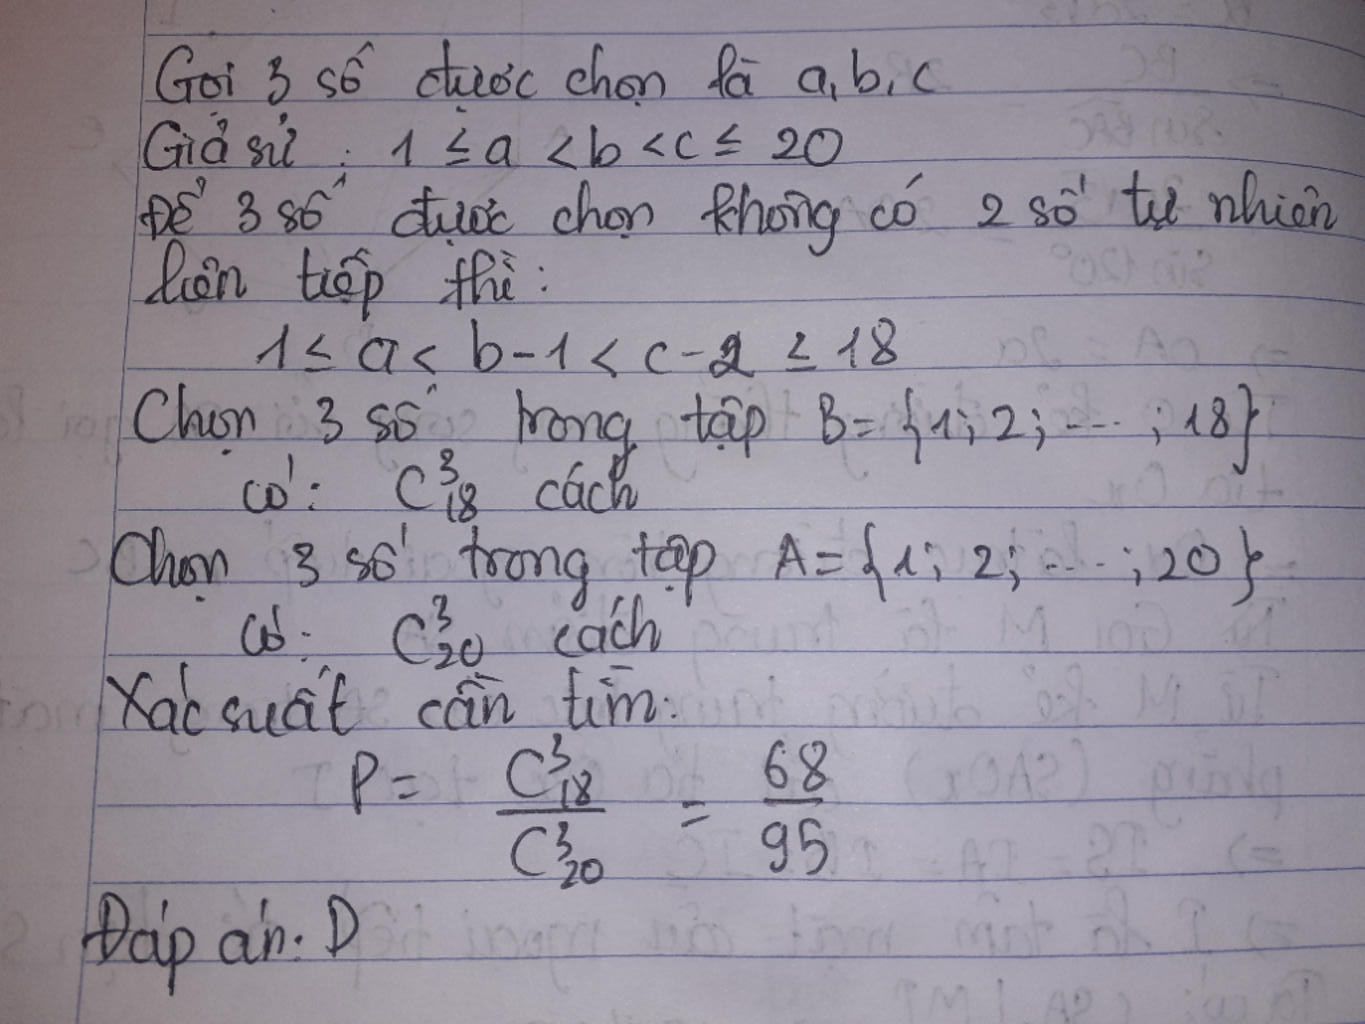 Gọi 3 số được chọn là a, b, c
Giả sử : 1 ≤ a < b < c ≤ 20
Để 3 số được chọn không có 2 số tự nhiên
liên tiếp thì :
1 ≤ a < b - 1 < c - 2 ≤ 18
Chọn 3 số trong tập B = {1; 2; ...; 18}
có: C³₁₈ cách
Chọn 3 số trong tập A = {1; 2; ...; 20}
có: C³₂₀ cách
Xác suất cần tìm:
P = C³₁₈ / C³₂₀ = 68 / 95
Đáp án: D